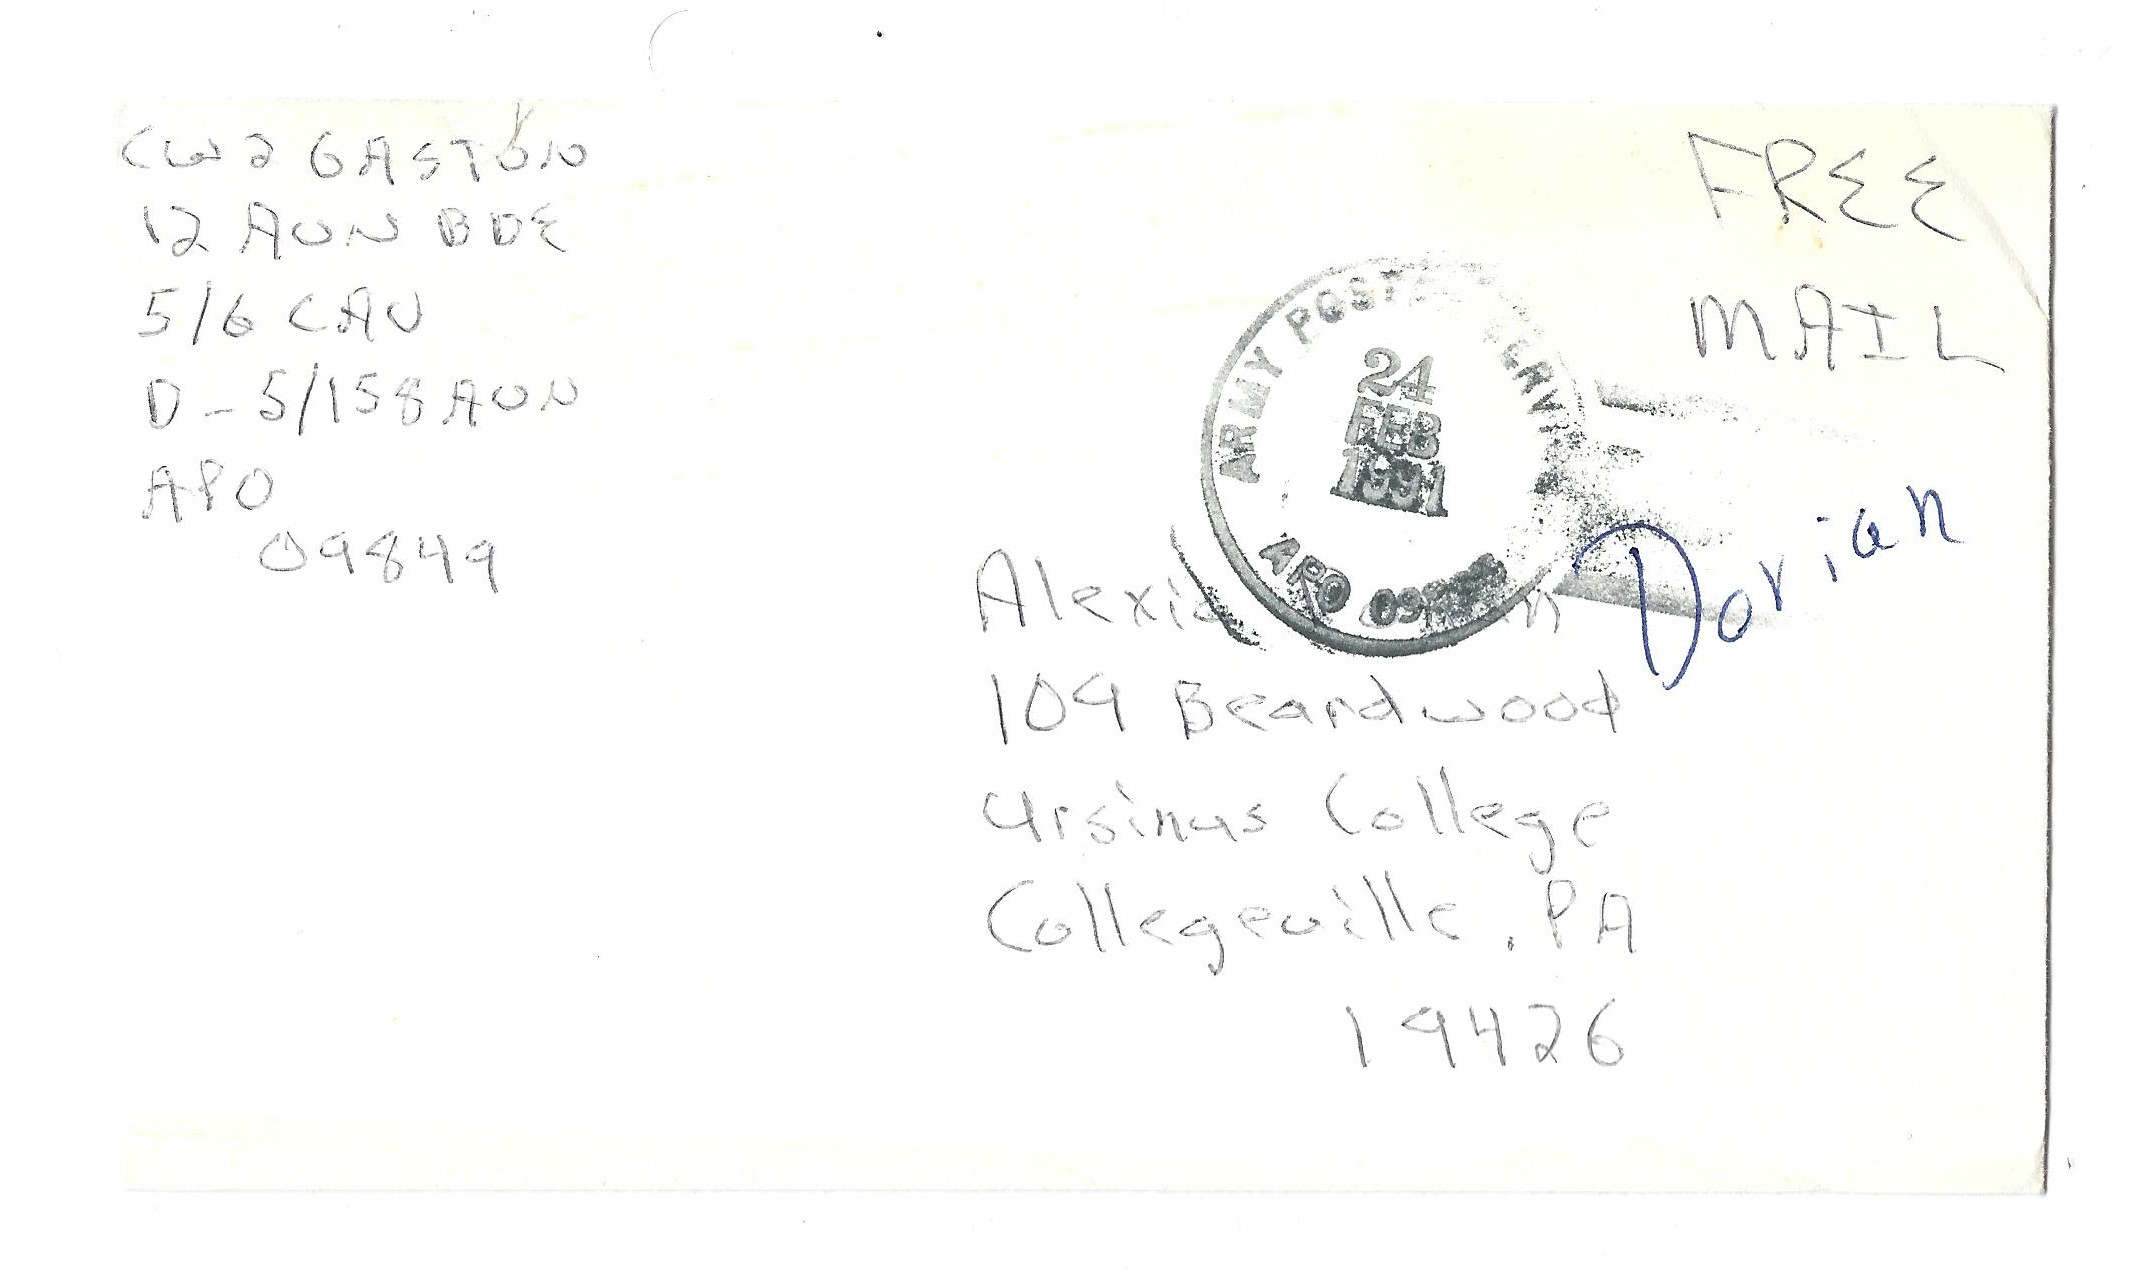 CW2 GASTON
12 AVN BDE
5/6 CAV
D-5/158 AVN
APO
09849
FREE
MAIL
ARMY POSTAL SERV
24
FEB
1991
APO 09
Dorian
104 Beardwood
Ursinus College
Collegeville, PA
19426